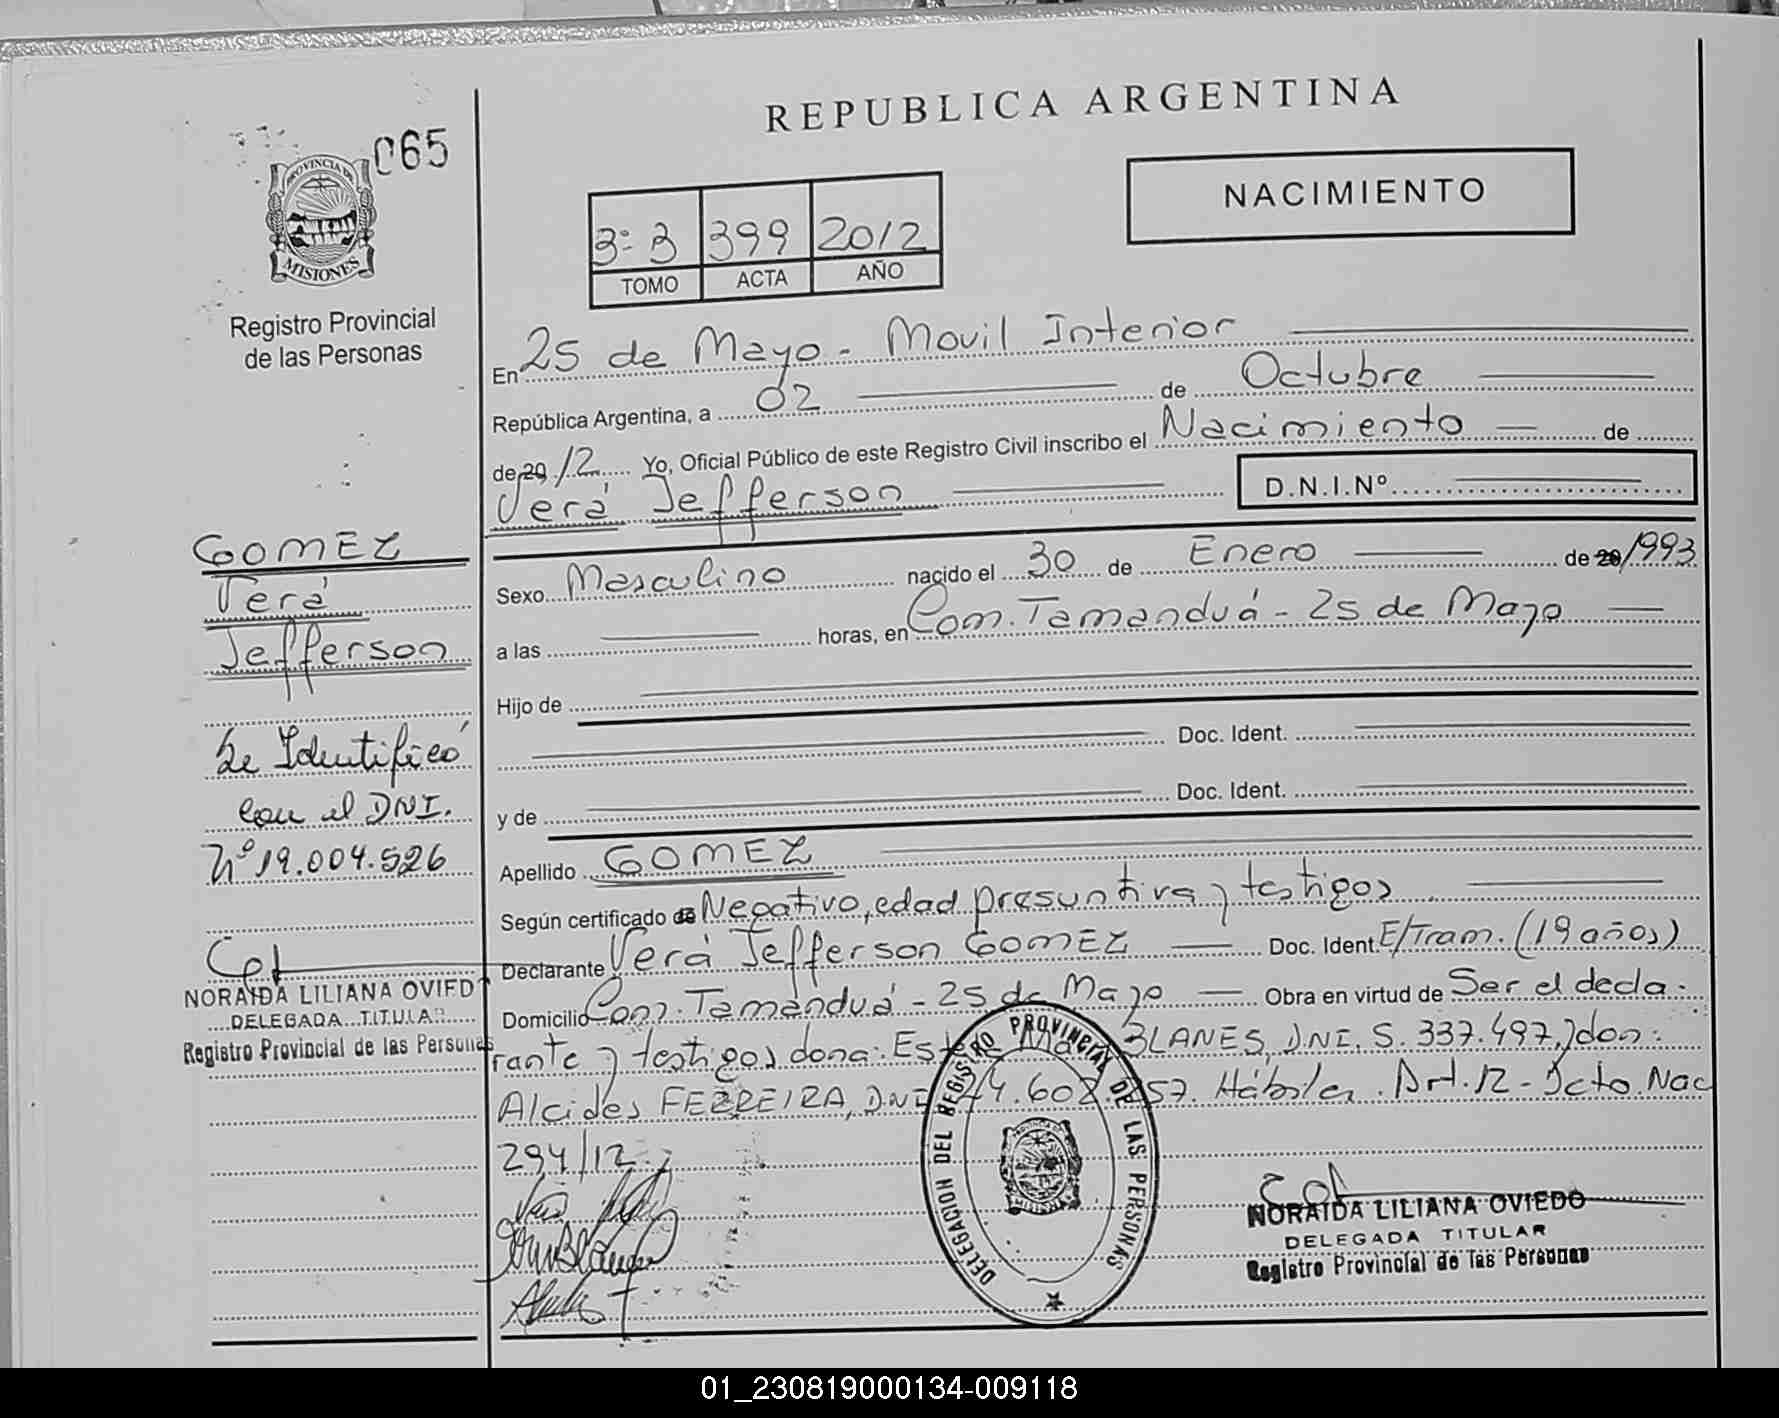 REPUBLICA ARGENTINA
065
PROVINCIA DE
MISIONES
Registro Provincial
de las Personas
NACIMIENTO
3º 3 399 2012
TOMO ACTA AÑO
En 25 de Mayo - Movil Interior
República Argentina, a 02 de Octubre
de 20 12 Yo, Oficial Público de este Registro Civil inscribo el Nacimiento de
Verá Jefferson D.N.I.Nº
GOMEZ
Verá
Jefferson
Se Identificó
con el DNI.
Nº 19.004.526
NORAIDA LILIANA OVIEDO
DELEGADA TITULAR
Registro Provincial de las Personas
Sexo Masculino nacido el 30 de Enero de 20 1993
a las horas, en Com. Tamanduá - 25 de Mayo
Hijo de
Doc. Ident.
y de Doc. Ident.
Apellido GOMEZ
Según certificado de Negativo, edad presuntiva y testigos
Declarante Verá Jefferson GOMEZ Doc. Ident. E/Tram. (19 años)
Domicilio Com. Tamanduá - 25 de Mayo Obra en virtud de Ser el decla-
rante y testigos dona: BLANES, DNI. 5.337.497, y don:
Alcides FERREIRA, DNI 24.602. 57. Hábiles. Art. 12 - Dcto. Nac
294/12.-
DELEGACION DEL REGISTRO PROVINCIAL DE LAS PERSONAS
NORAIDA LILIANA OVIEDO
DELEGADA TITULAR
Registro Provincial de las Personas
01_230819000134-009118